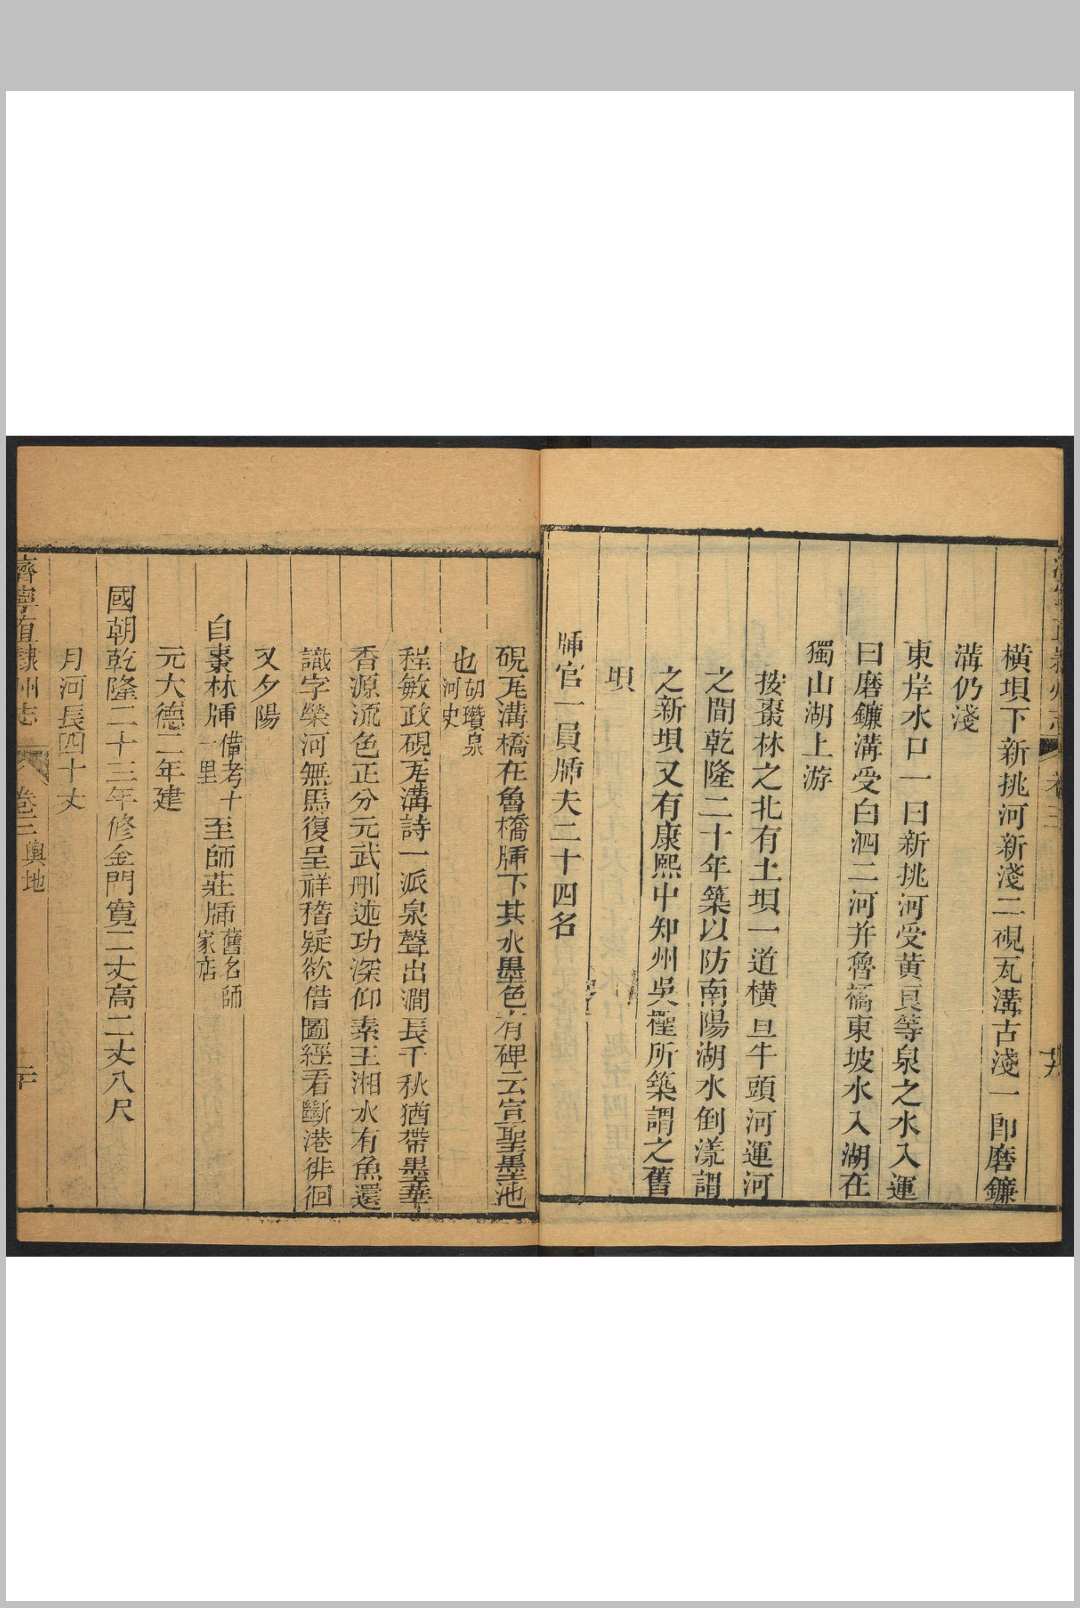 橫垻下新挑河新淺二硯瓦溝古淺一卽磨鐮
溝仍淺
東岸水口一曰新挑河受黃良等泉之水入運
曰磨鐮溝受白泗二河并魯橋東坡水入湖在
獨山湖上游
按棗林之北有土垻一道橫亘牛頭河運河
之間乾隆二十年築以防南陽湖水倒漾謂
之新垻又有康熙中知州吳檉所築謂之舊
垻
牐官一員牐夫二十四名
硯瓦溝橋在魯橋牐下其水墨色有碑云宣聖墨池
也胡瓚泉河史
程敏政硯瓦溝詩一派泉聲出澗長千秋猶帶墨華
香源流色正分元武刪述功深仰素王湘水有魚還
識字榮河無馬復呈祥稽疑欲借圖經看斷港徘徊
又夕陽
自棗林牐備考十一里至師莊牐舊名師家店
元大德二年建
國朝乾隆二十三年修金門寬二丈高二丈八尺
月河長四十丈
濟寧直隸州志 卷三 輿地 二十